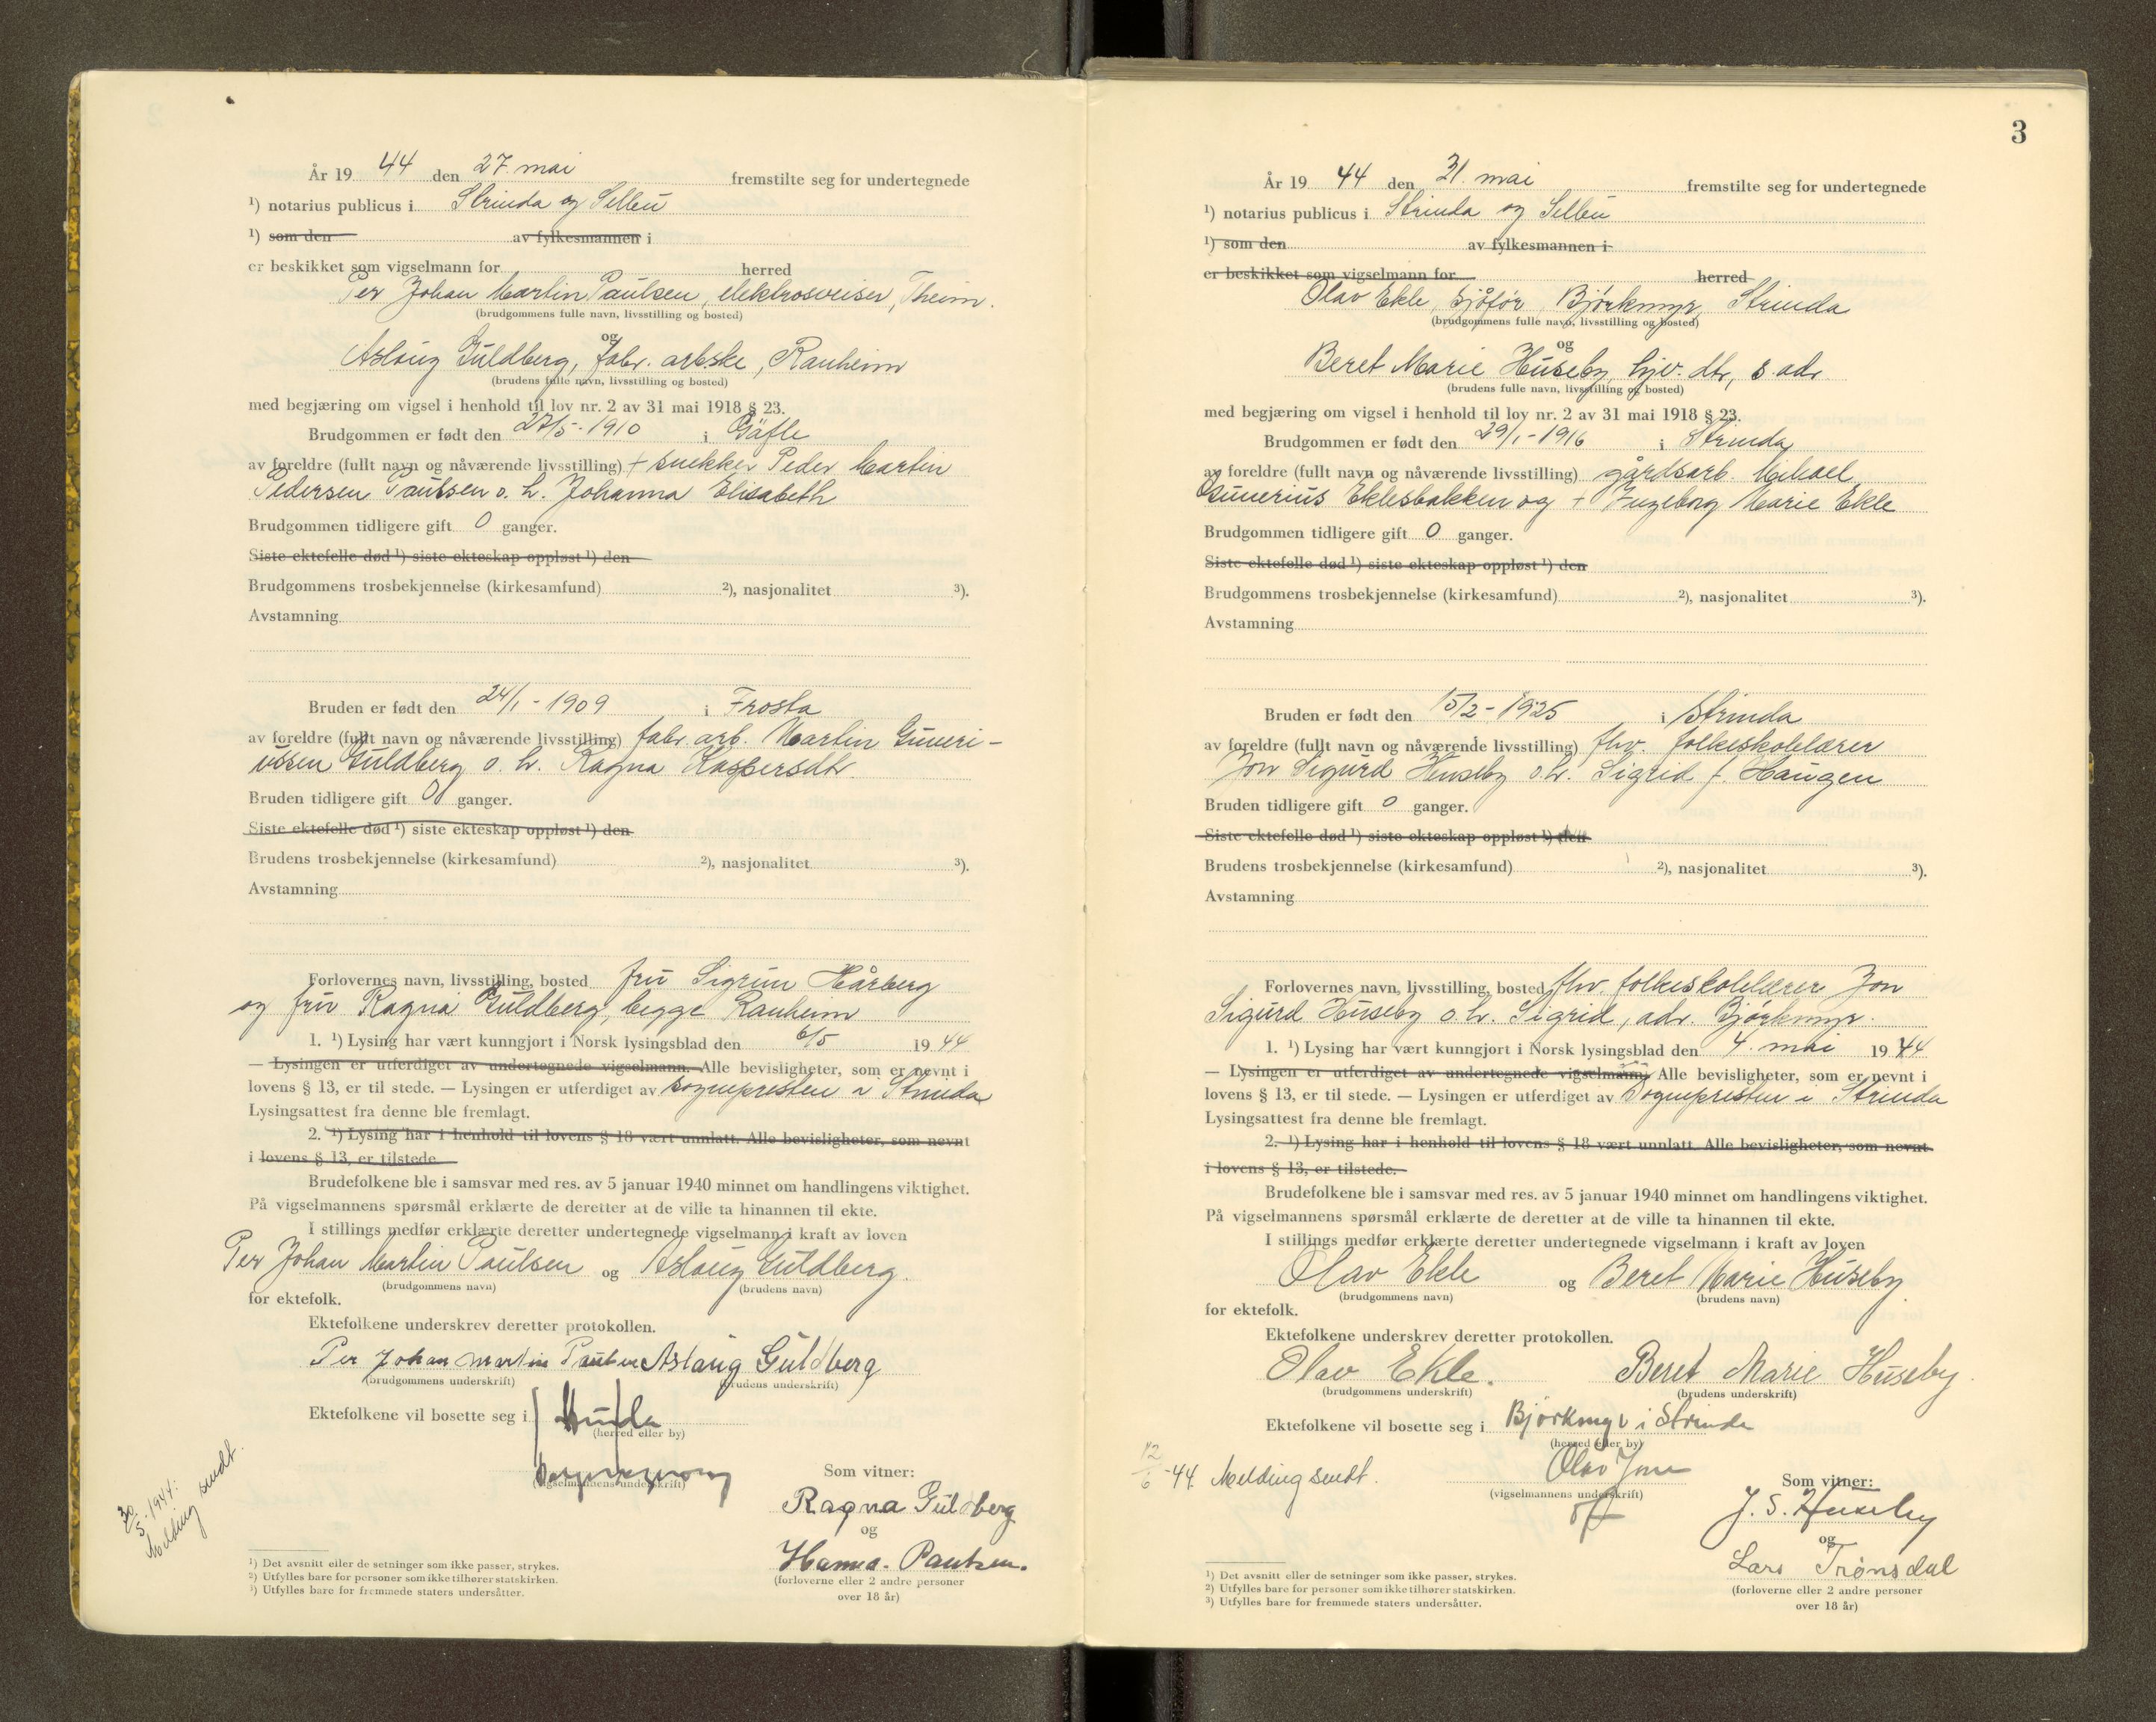 År 19 44 den 27. mai fremstilte seg for undertegnede
¹) notarius publicus i Strinda og Selbu
¹) som den av fylkesmannen i
er beskikket som vigselmann for herred
Per Johan Martin Paulsen, elektrosveiser, Trheim.
(brudgommens fulle navn, livsstilling og bosted)
og
Aslaug Guldberg, fabr. arbske, Ranheim
(brudens fulle navn, livsstilling og bosted)
med begjæring om vigsel i henhold til lov nr. 2 av 31 mai 1918 § 23.
Brudgommen er født den 27/5-1910 i Gäfle
av foreldre (fullt navn og nåværende livsstilling) + snekker Peder Martin
Pedersen Paulsen o. h. Johanna Elisabeth
Brudgommen tidligere gift 0 ganger.
Siste ektefelle død ¹) siste ekteskap oppløst ¹) den
Brudgommens trosbekjennelse (kirkesamfund) ²), nasjonalitet ³).
Avstamning
Bruden er født den 24/1-1909 i Frosta
av foreldre (fullt navn og nåværende livsstilling) fabr. arb. Martin Guneri-
ussen Guldberg o. h. Ragna Kaspersdtr.
Bruden tidligere gift 0 ganger.
Siste ektefelle død ¹) siste ekteskap oppløst ¹) den
Brudens trosbekjennelse (kirkesamfund) ²), nasjonalitet ³).
Avstamning
Forlovernes navn, livsstilling, bosted fru Sigrun Hårberg
og fru Ragna Guldberg, begge Ranheim
1. ¹) Lysing har vært kunngjort i Norsk lysingsblad den 6/5 19 44
— Lysingen er utferdiget av undertegnede vigselmann. Alle bevisligheter, som er nevnt i
lovens § 13, er til stede. — Lysingen er utferdiget av sognepresten i Strinda
Lysingsattest fra denne ble fremlagt.
2. ¹) Lysing har i henhold til lovens § 18 vært unnlatt. Alle bevisligheter, som nevnt
i lovens § 13, er tilstede.
Brudefolkene ble i samsvar med res. av 5 januar 1940 minnet om handlingens viktighet.
På vigselmannens spørsmål erklærte de deretter at de ville ta hinannen til ekte.
I stillings medfør erklærte deretter undertegnede vigselmann i kraft av loven
Per Johan Martin Paulsen og Aslaug Guldberg.
(brudgommens navn) (brudens navn)
for ektefolk.
Ektefolkene underskrev deretter protokollen.
Per Johan Martin Paulsen Aslaug Guldberg
(brudgommens underskrift) (brudens underskrift)
Ektefolkene vil bosette seg i Strinda
(herred eller by)
(vigselmannens underskrift)
Som vitner:
Ragna Guldberg
og
Hanna Paulsen.
(forloverne eller 2 andre personer
over 18 år)
30/5. 1944.
Melding sendt.
¹) Det avsnitt eller de setninger som ikke passer, strykes.
²) Utfylles bare for personer som ikke tilhører statskirken.
³) Utfylles bare for fremmede staters undersåtter.
3
År 19 44 den 31. mai fremstilte seg for undertegnede
¹) notarius publicus i Strinda og Selbu
¹) som den av fylkesmannen i
er beskikket som vigselmann for herred
Olav Ekle, sjåfør, Bjørkmyr, Strinda
(brudgommens fulle navn, livsstilling og bosted)
og
Beret Marie Huseby, hjv. dtr, s. adr.
(brudens fulle navn, livsstilling og bosted)
med begjæring om vigsel i henhold til lov nr. 2 av 31 mai 1918 § 23.
Brudgommen er født den 29/1-1916 i Strinda
av foreldre (fullt navn og nåværende livsstilling) gårdsarb. Mikael
Gunerius Eklesbakken og + Ingeborg Marie Ekle
Brudgommen tidligere gift 0 ganger.
Siste ektefelle død ¹) siste ekteskap oppløst ¹) den
Brudgommens trosbekjennelse (kirkesamfund) ²), nasjonalitet ³).
Avstamning
Bruden er født den 15/2-1925 i Strinda
av foreldre (fullt navn og nåværende livsstilling) fhv. folkeskolelærer
Jon Sigurd Huseby o.h. Sigrid f. Haugen
Bruden tidligere gift 0 ganger.
Siste ektefelle død ¹) siste ekteskap oppløst ¹) den
Brudens trosbekjennelse (kirkesamfund) ²), nasjonalitet ³).
Avstamning
Forlovernes navn, livsstilling, bosted fhv. folkeskolelærer Jon
Sigurd Huseby o.h. Sigrid, adr. Bjørkmyr.
1. ¹) Lysing har vært kunngjort i Norsk lysingsblad den 4. mai 19 44
— Lysingen er utferdiget av undertegnede vigselmann. Alle bevisligheter, som er nevnt i
lovens § 13, er til stede. — Lysingen er utferdiget av Sognepresten i Strinda
Lysingsattest fra denne ble fremlagt.
2. ¹) Lysing har i henhold til lovens § 18 vært unnlatt. Alle bevisligheter, som nevnt
i lovens § 13, er tilstede.
Brudefolkene ble i samsvar med res. av 5 januar 1940 minnet om handlingens viktighet.
På vigselmannens spørsmål erklærte de deretter at de ville ta hinannen til ekte.
I stillings medfør erklærte deretter undertegnede vigselmann i kraft av loven
Olav Ekle og Beret Marie Huseby
(brudgommens navn) (brudens navn)
for ektefolk.
Ektefolkene underskrev deretter protokollen.
Olav Ekle. Beret Marie Huseby.
(brudgommens underskrift) (brudens underskrift)
Ektefolkene vil bosette seg i Bjørkmyr i Strinda
(herred eller by)
12/6-44. Melding sendt.
Olav
(vigselmannens underskrift)
Som vitner:
J. S. Huseby
og
Lars Trønsdal
(forloverne eller 2 andre personer
over 18 år)
¹) Det avsnitt eller de setninger som ikke passer, strykes.
²) Utfylles bare for personer som ikke tilhører statskirken.
³) Utfylles bare for fremmede staters undersåtter.